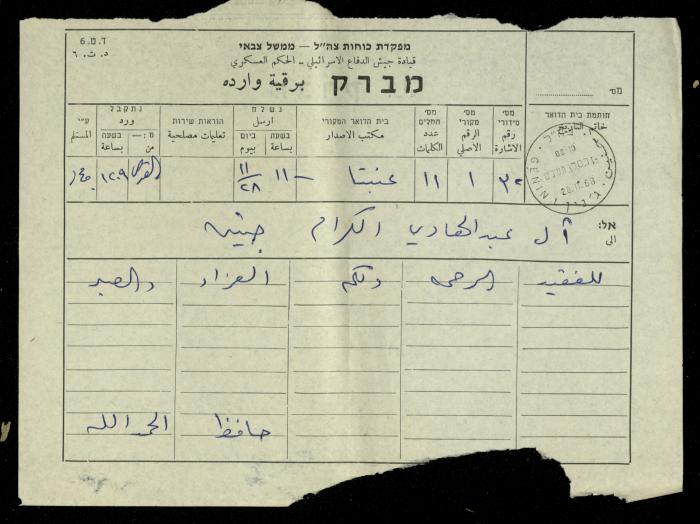 ד.ט.6
د.ت.٦
מפקדת כוחות צה"ל — ממשל צבאי
قيادة جيش الدفاع الاسرائيلي - الحكم العسكري
מברק برقية وارده
מסי
חותמת בית הדואר
خاتم التاريخ
מס' סידורי
رقم الاشارة
מס' מקורי
الرقم الاصلي
מס' המלים
عدد الكلمات
בית הדואר המקורי
مكتب الاصدار
נשלח
ارسل
בשעה
بساعة
ביום
بيوم
הוראות שירות
تعليمات مصلحية
נתקבל
ورد
מ: —
من
בשעה
بساعة
ע"י
المستلم
٣٠ ١ ١١ عنبتا ١١- ١١/٢٨ ١٢٠٩
JENIN
אל: آل عبدالهادي الكرام جنين
الى
للفقيد الرحمه ولكم العزاء والصبر
حافظ الحمدالله